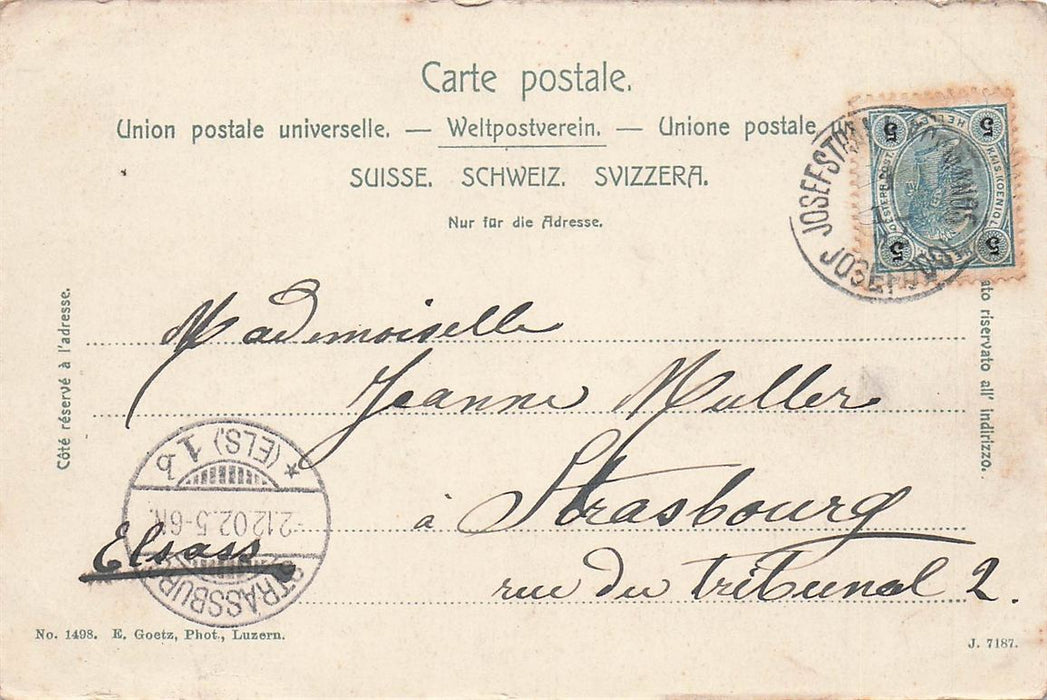 Carte postale.
Union postale universelle. — Weltpostverein. — Unione postale
SUISSE. SCHWEIZ. SVIZZERA.
Nur für die Adresse.
JOSEFSTHAL
5 5 5 5
Côté réservé à l'adresse.
ato riservato all' indirizzo.
Mademoiselle
Jeanne Muller
à Strasbourg
rue du tribunal 2.
Elsass
STRASSBURG
2.12.02.5-6N.
* (ELS.) 1 b
No. 1498. E. Goetz, Phot., Luzern.
J. 7187.